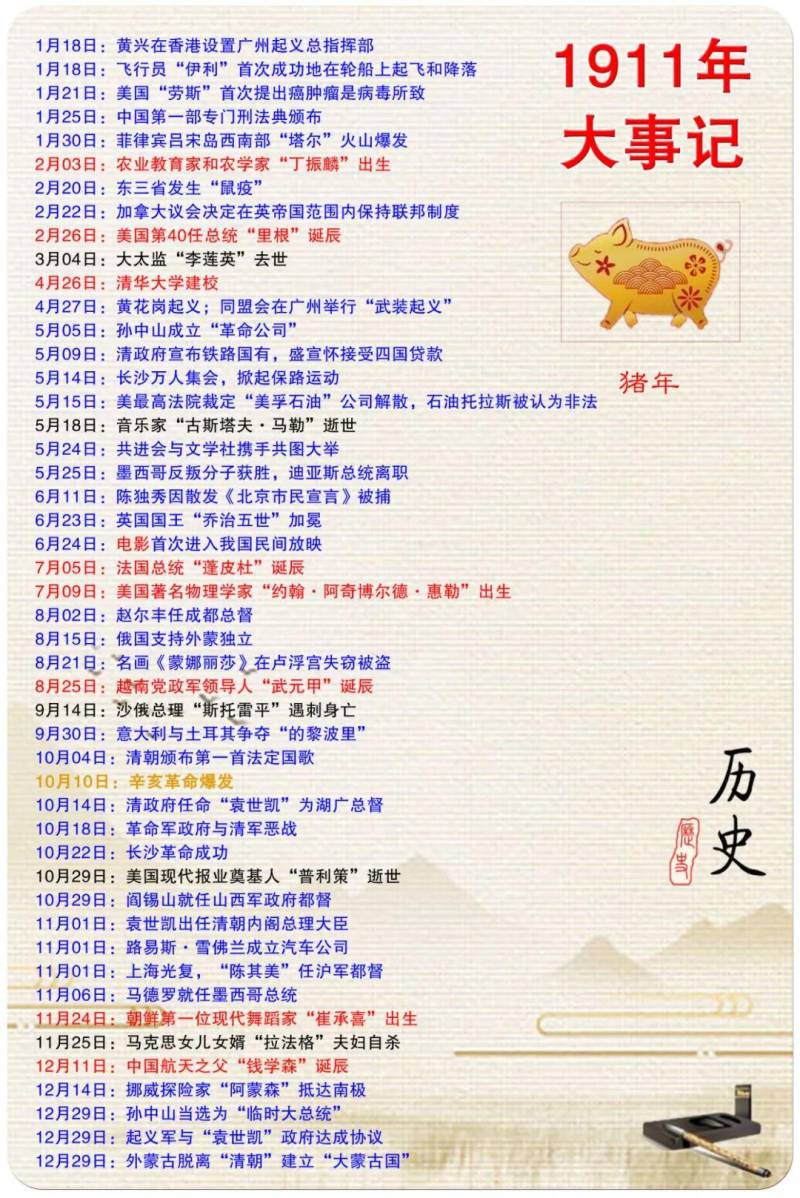 1911年
大事记
猪年
1月18日：黄兴在香港设置广州起义总指挥部
1月18日：飞行员“伊利”首次成功地在轮船上起飞和降落
1月21日：美国“劳斯”首次提出癌肿瘤是病毒所致
1月25日：中国第一部专门刑法典颁布
1月30日：菲律宾吕宋岛西南部“塔尔”火山爆发
2月03日：农业教育家和农学家“丁振麟”出生
2月20日：东三省发生“鼠疫”
2月22日：加拿大议会决定在英帝国范围内保持联邦制度
2月26日：美国第40任总统“里根”诞辰
3月04日：大太监“李莲英”去世
4月26日：清华大学建校
4月27日：黄花岗起义；同盟会在广州举行“武装起义”
5月05日：孙中山成立“革命公司”
5月09日：清政府宣布铁路国有，盛宣怀接受四国贷款
5月14日：长沙万人集会，掀起保路运动
5月15日：美最高法院裁定“美孚石油”公司解散，石油托拉斯被认为非法
5月18日：音乐家“古斯塔夫·马勒”逝世
5月24日：共进会与文学社携手共图大举
5月25日：墨西哥反叛分子获胜，迪亚斯总统离职
6月11日：陈独秀因散发《北京市民宣言》被捕
6月23日：英国国王“乔治五世”加冕
6月24日：电影首次进入我国民间放映
7月05日：法国总统“蓬皮杜”诞辰
7月09日：美国著名物理学家“约翰·阿奇博尔德·惠勒”出生
8月02日：赵尔丰任成都总督
8月15日：俄国支持外蒙独立
8月21日：名画《蒙娜丽莎》在卢浮宫失窃被盗
8月25日：越南党政军领导人“武元甲”诞辰
9月14日：沙俄总理“斯托雷平”遇刺身亡
9月30日：意大利与土耳其争夺“的黎波里”
10月04日：清朝颁布第一首法定国歌
10月10日：辛亥革命爆发
10月14日：清政府任命“袁世凯”为湖广总督
10月18日：革命军政府与清军恶战
10月22日：长沙革命成功
10月29日：美国现代报业奠基人“普利策”逝世
10月29日：阎锡山就任山西军政府都督
11月01日：袁世凯出任清朝内阁总理大臣
11月01日：路易斯·雪佛兰成立汽车公司
11月01日：上海光复，“陈其美”任沪军都督
11月06日：马德罗就任墨西哥总统
11月24日：朝鲜第一位现代舞蹈家“崔承喜”出生
11月25日：马克思女儿女婿“拉法格”夫妇自杀
12月11日：中国航天之父“钱学森”诞辰
12月14日：挪威探险家“阿蒙森”抵达南极
12月29日：孙中山当选为“临时大总统”
12月29日：起义军与“袁世凯”政府达成协议
12月29日：外蒙古脱离“清朝”建立“大蒙古国”
历史
歷史